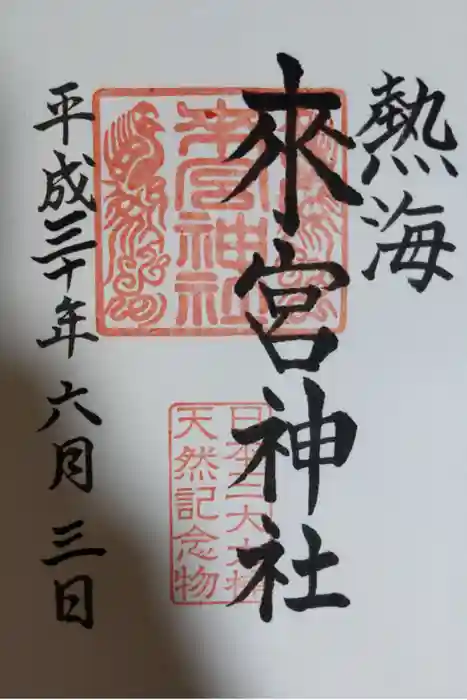 熱海
來宮神社
平成三十年六月三日
来宮神社
日本三大大楠
天然記念物